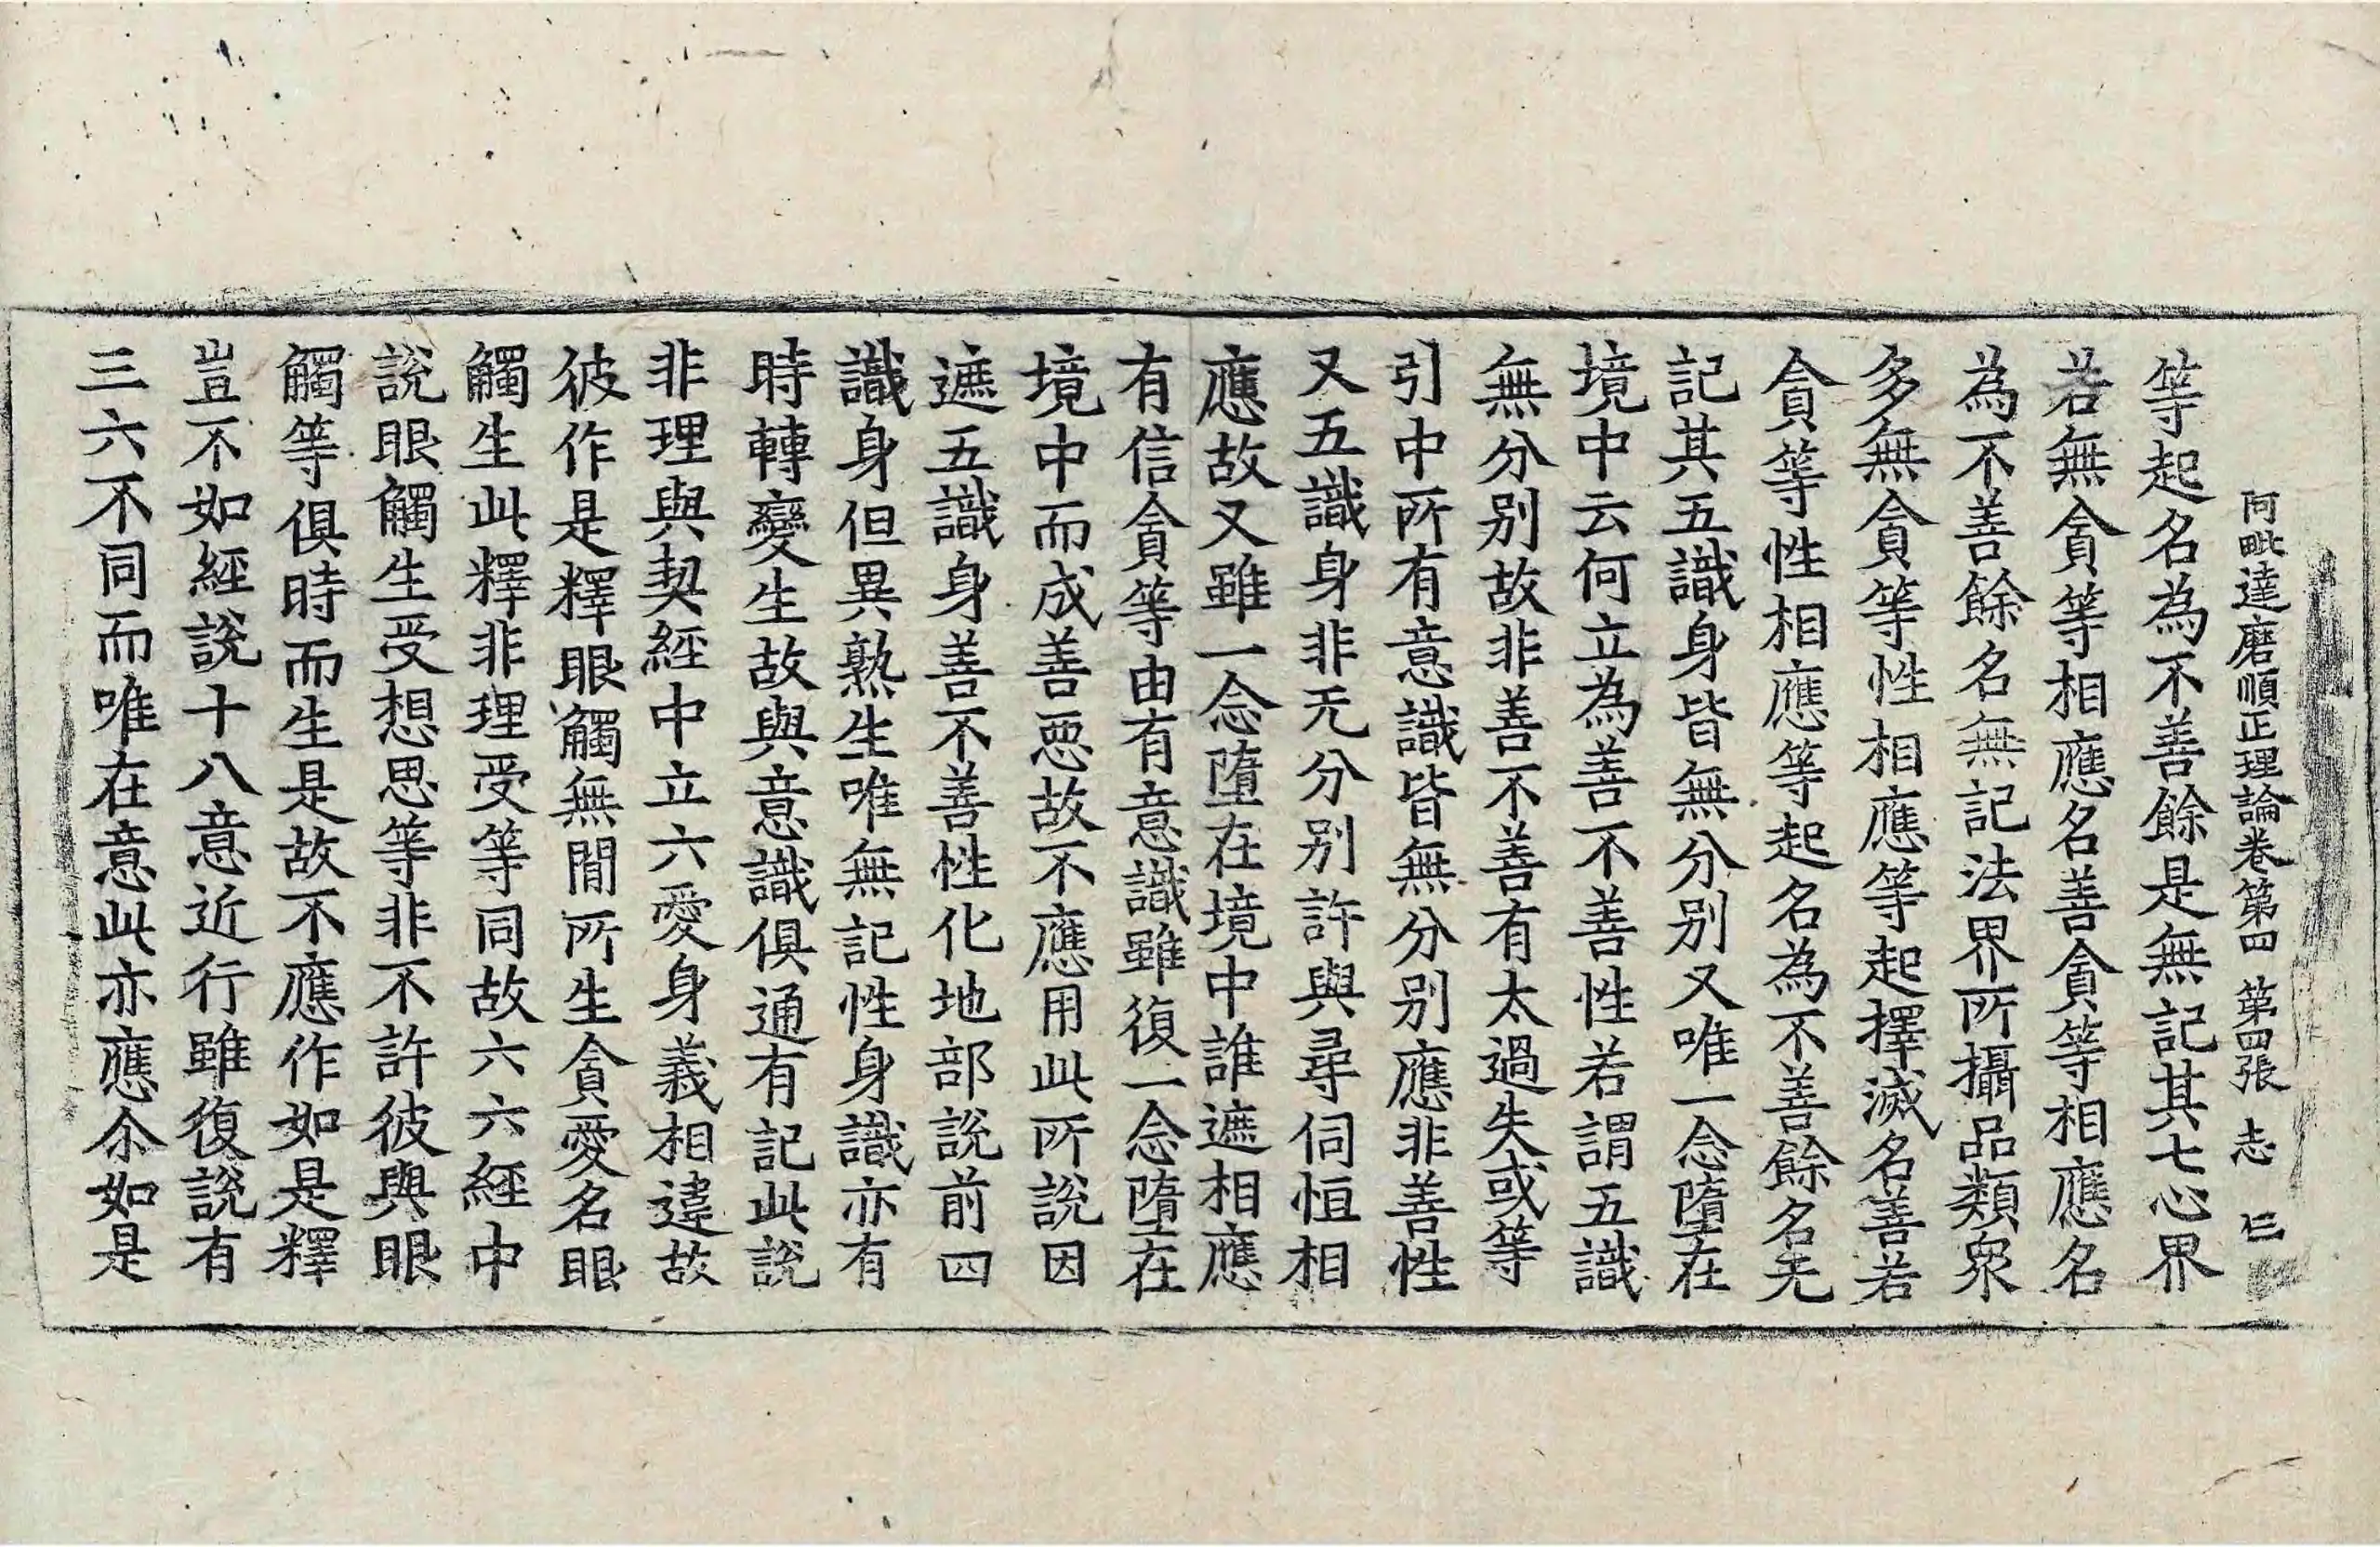 阿毗達磨順正理論卷第四 第四張 志
等起名為不善餘是無記其七心界
若無貪等相應名善貪等相應名
為不善餘名無記法界所攝品類衆
多無貪等性相應等起擇滅名善若
貪等性相應等起名為不善餘名无
記其五識身皆無分別又唯一念墮在
境中云何立為善不善性若謂五識
無分別故非善不善有太過失或等
引中所有意識皆無分別應非善性
又五識身非无分别許與尋伺恒相
應故又雖一念墮在境中誰遮相應
有信貪等由有意識雖復一念墮在
境中而成善惡故不應用此所說因
遮五識身善不善性化地部說前四
識身但異熟生唯無記性身識亦有
時轉變生故與意識俱通有記此說
非理與契經中立六愛身義相違故
彼作是釋眼觸無間所生貪愛名眼
觸生此釋非理受等同故六六經中
說眼觸生受想思等非不許彼與眼
觸等俱時而生是故不應作如是釋
豈不如經說十八意近行雖復說有
三六不同而唯在意此亦應尒如是